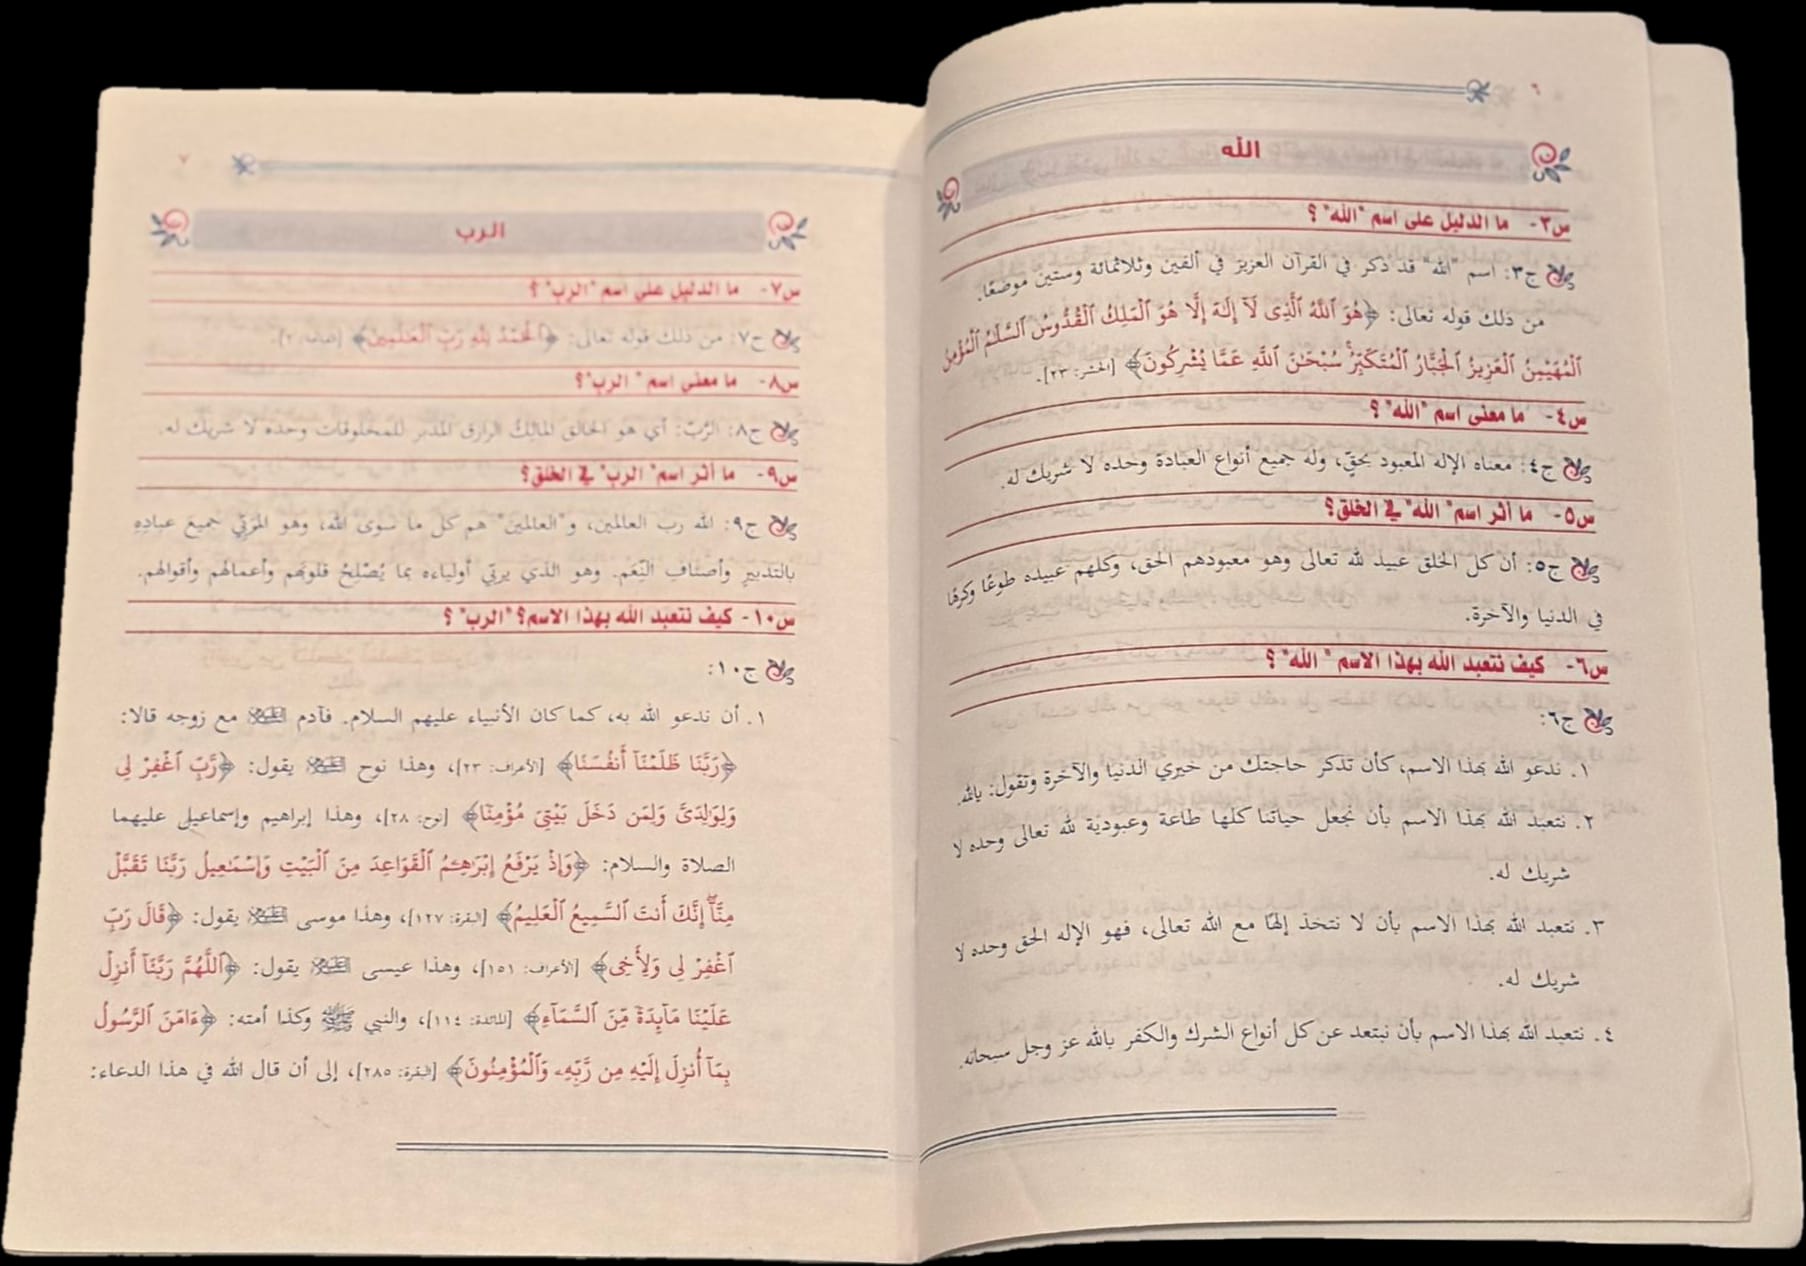 ٦
الله
س٣- ما الدليل على اسم "الله" ؟
ج٣: اسم "الله" قد ذكر في القرآن العزيز في ألفين وثلاثمائة وستين موضعًا.
من ذلك قوله تعالى: ﴿هُوَ ٱللَّهُ ٱلَّذِى لَآ إِلَٰهَ إِلَّا هُوَ ٱلْمَلِكُ ٱلْقُدُّوسُ ٱلسَّلَٰمُ ٱلْمُؤْمِنُ
ٱلْمُهَيْمِنُ ٱلْعَزِيزُ ٱلْجَبَّارُ ٱلْمُتَكَبِّرُ ۚ سُبْحَٰنَ ٱللَّهِ عَمَّا يُشْرِكُونَ﴾ [الحشر: ٢٣].
س٤- ما معنى اسم "الله" ؟
ج٤: معناه الإله المعبود بحقٍّ، وله جميع أنواع العبادة وحده لا شريك له.
س٥- ما أثر اسم" الله" في الخلق؟
ج٥: أن كل الخلق عبيد لله تعالى وهو معبودهم الحق، وكلهم عبيده طوعًا وكرهًا
في الدنيا والآخرة.
س٦- كيف نتعبد الله بهذا الاسم " الله" ؟
ج٦:
١. ندعو الله بهذا الاسم، كأن تذكر حاجتك من خيري الدنيا والآخرة وتقول: يالله.
٢. نتعبد الله بهذا الاسم بأن نجعل حياتنا كلها طاعة وعبودية لله تعالى وحده لا
شريك له.
٣. نتعبد الله بهذا الاسم بأن لا نتخذ إلهًا مع الله تعالى، فهو الإله الحق وحده لا
شريك له.
٤. نتعبد الله بهذا الاسم بأن نبتعد عن كل أنواع الشرك والكفر بالله عز وجل سبحانه.
٧
الرب
س٧- ما الدليل على اسم "الرب" ؟
ج٧: من ذلك قوله تعالى: ﴿ٱلْحَمْدُ لِلَّهِ رَبِّ ٱلْعَٰلَمِينَ﴾ [الفاتحة: ٢].
س٨- ما معنى اسم " الرب"؟
ج٨: الرَّبّ: أي هو الخالق المالِكُ الرازق المدبر للمخلوقات وحده لا شريك له.
س٩- ما أثر اسم" الرب" في الخلق؟
ج٩: الله رب العالمين، و"العالمين" هم كل ما سوى الله، وهو المُربِّي جميعَ عبادِهِ
بالتدبيرِ وأصنافِ النِّعَم. وهو الذي يربّي أولياءه بما يُصْلِحُ قلوبَهم وأعمالَهم وأقوالهم.
س١٠- كيف نتعبد الله بهذا الاسم؟ "الرب" ؟
ج١٠:
١. أن ندعو الله به، كما كان الأنبياء عليهم السلام. فآدم عليه السلام مع زوجه قالا:
﴿رَبَّنَا ظَلَمْنَآ أَنفُسَنَا﴾ [الأعراف: ٢٣]، وهذا نوح عليه السلام يقول: ﴿رَّبِّ ٱغْفِرْ لِى
وَلِوَٰلِدَىَّ وَلِمَن دَخَلَ بَيْتِىَ مُؤْمِنًا﴾ [نوح: ٢٨]، وهذا إبراهيم وإسماعيل عليهما
الصلاة والسلام: ﴿وَإِذْ يَرْفَعُ إِبْرَٰهِۦمُ ٱلْقَوَاعِدَ مِنَ ٱلْبَيْتِ وَإِسْمَٰعِيلُ رَبَّنَا تَقَبَّلْ
مِنَّآ ۖ إِنَّكَ أَنتَ ٱلسَّمِيعُ ٱلْعَلِيمُ﴾ [البقرة: ١٢٧]، وهذا موسى عليه السلام يقول: ﴿قَالَ رَبِّ
ٱغْفِرْ لِى وَلِأَخِى﴾ [الأعراف: ١٥١]، وهذا عيسى عليه السلام يقول: ﴿ٱللَّهُمَّ رَبَّنَآ أَنزِلْ
عَلَيْنَا مَآئِدَةً مِّنَ ٱلسَّمَآءِ﴾ [المائدة: ١١٤]، والنبي ﷺ وكذا أمته: ﴿ءَامَنَ ٱلرَّسُولُ
بِمَآ أُنزِلَ إِلَيْهِ مِن رَّبِّهِۦ وَٱلْمُؤْمِنُونَ﴾ [البقرة: ٢٨٥]، إلى أن قال الله في هذا الدعاء: